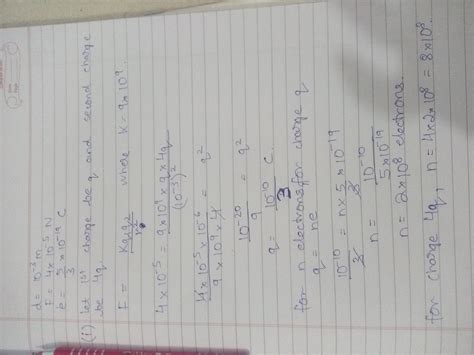 d = 10⁻³ m
F = 4 × 10⁻⁵ N
e = 5/3 × 10⁻¹⁹ C
(i) Let 1st charge be q and second charge
be 4q.
F = Kq₁q₂/r² where K = 9 × 10⁹
4 × 10⁻⁵ = 9 × 10⁹ × q × 4q / (10⁻³)²
4 × 10⁻⁵ × 10⁻⁶ / 9 × 10⁹ × 4 = q²
10⁻²⁰ / 9 = q²
q = 10⁻¹⁰ / 3 C.
for n electrons, for charge q
q = ne
10⁻¹⁰ / 3 = n × 5 × 10⁻¹⁹ / 3
n = 10⁻¹⁰ / 5 × 10⁻¹⁹
n = 2 × 10⁸ electrons.
for charge 4q, n = 4 × 2 × 10⁸ = 8 × 10⁸.